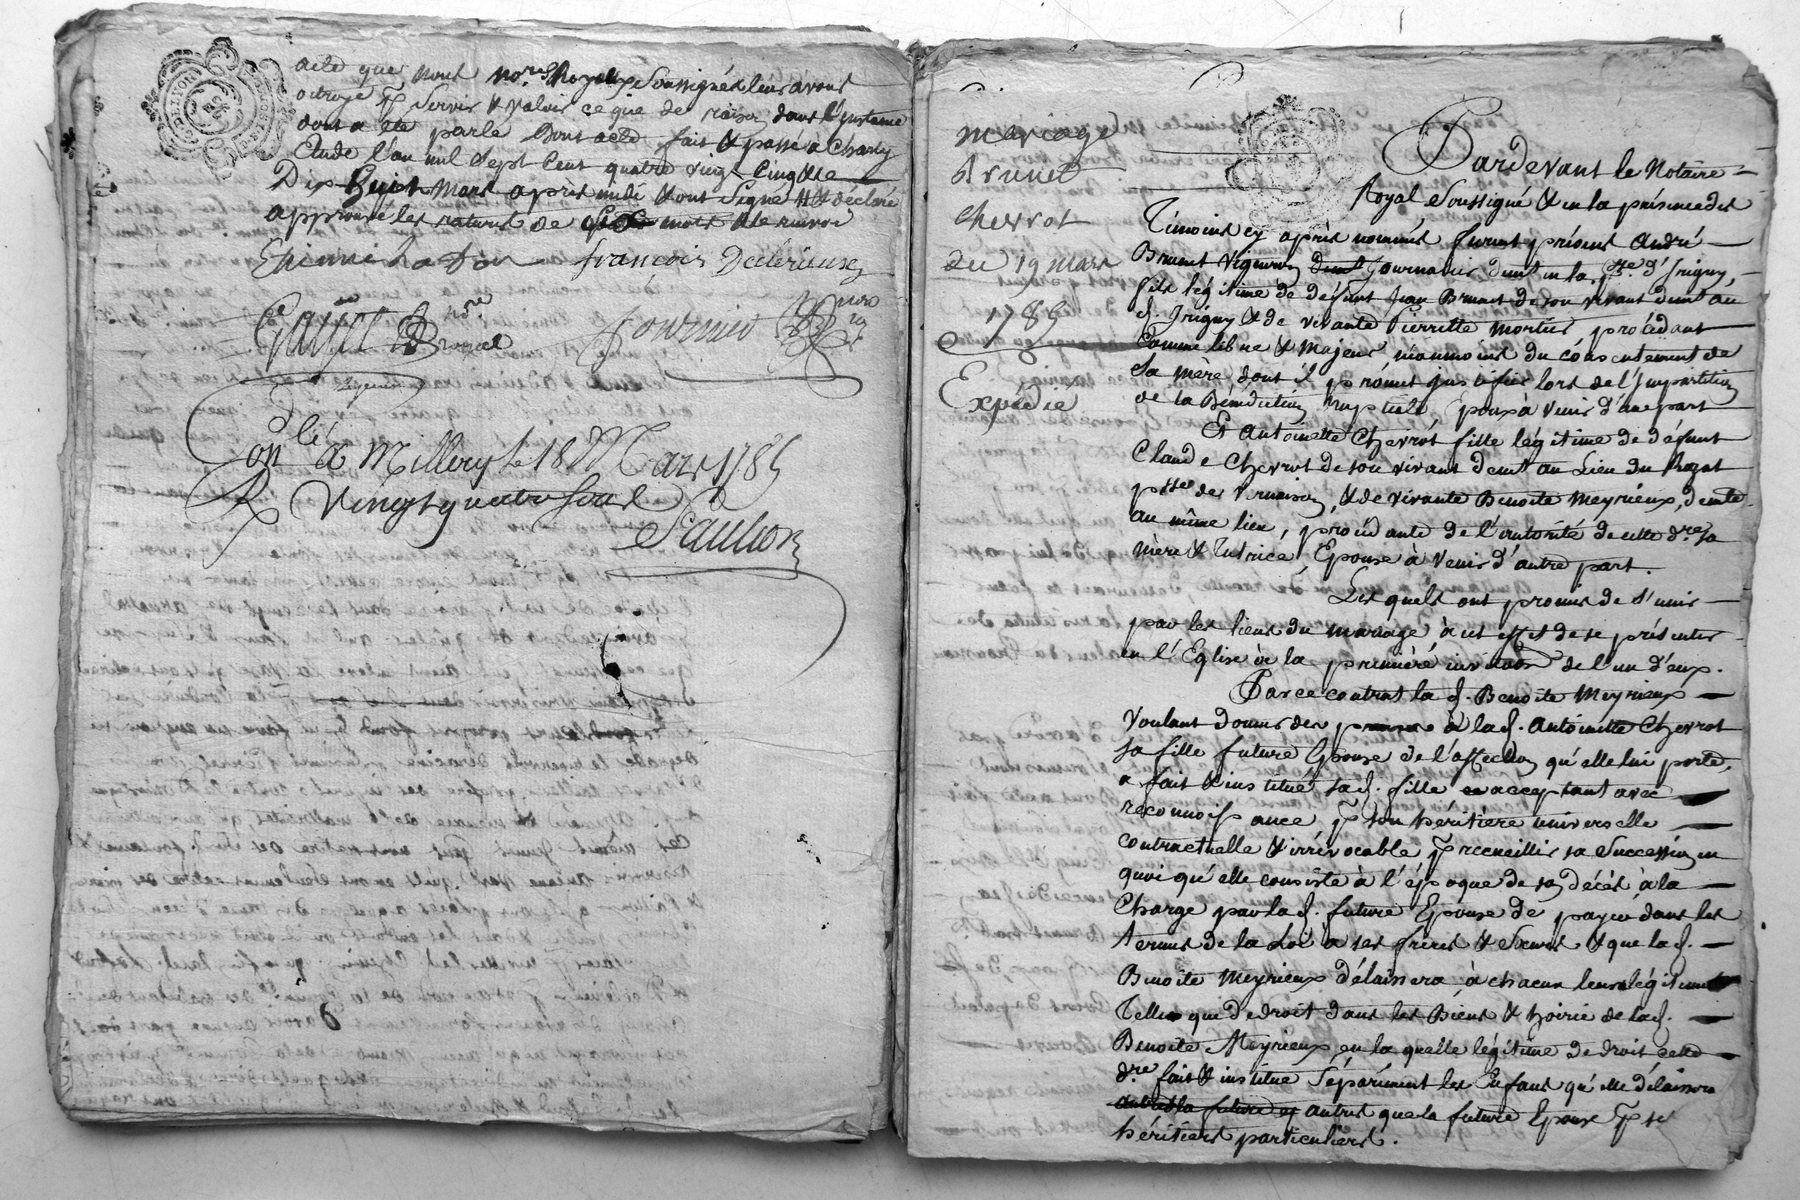 acte que nous no.res Royaux Soussignés leur avons
octroyé p Servir & valoir ce que de raison dans l'instance
dont a été parlé Dont acte fait & passé à Charly
Etude l'an mil Sept Cent quatre vingt Cinq & le
Dix huit mars après midi & ont Signé & déclaré
approuvé les ratures de mots & le renvoi
Etienne françois
Gayet
fournier
Con.lé à Millery le 18 Mars 1785
R vingt quatre sous
Saulion
mariage
Brunet
Chevrot
du 19 mars
1785
Expédié
Pardevant le Notaire
Royal Soussigné & en la présence des
Témoins cy après nommés furent présens André
Brunet vigneron Journalier demt en la p.sse d'Irigny,
fils légitime de défunt Jean Brunet de son vivant demt au
d. Irigny & de vivante Pierrette mortier procédant
Comme libre & Majeur néanmoins du consentement de
Sa mere dont il promet justifier lors de l'Impartition
de la Bénédiction Nuptiale Epoux à venir d'une part
Et Antoinette Chevrot fille légitime de défunt
Claude Chevrot de son vivant demt au Lieu du
p.sse de Vernaison, & de vivante Benoite Meyrieux, demte
au même lieu, procédante de l'autorité de cette d.re sa
mère & Tutrice, Epouse à venir d'autre part.
Lesquels ont promis de s'unir
par les liens du mariage à cet effet de se présenter
en l'Eglise à la première invitation de l'un d'eux.
Par ce contrat la d. Benoite Meyrieux
voulant donner des preuves à la d. Antoinette Chevrot
sa fille future Epouse de l'affection qu'elle lui porte,
a fait & institué sa d. fille acceptant avec
reconnoissance p son héritière universelle
contractuelle & irrévocable p recueillir sa Succession en
quoi qu'elle consiste à l'époque de son décès à la
Charge par la d. future Epouse de payer dans les
termes de la Loi à ses frères & Sœurs & que la d.
Benoite Meyrieux délaissera, à chacun leur légitime
Telle que de droit dans les Biens & hoirie de la d.
Benoite Meyrieux, en la quelle légitime de droit cette
d.re fait & institue Séparément les Enfans qu'elle délaissera
autres la future autres que la future Epouse p ses
héritiers particuliers.